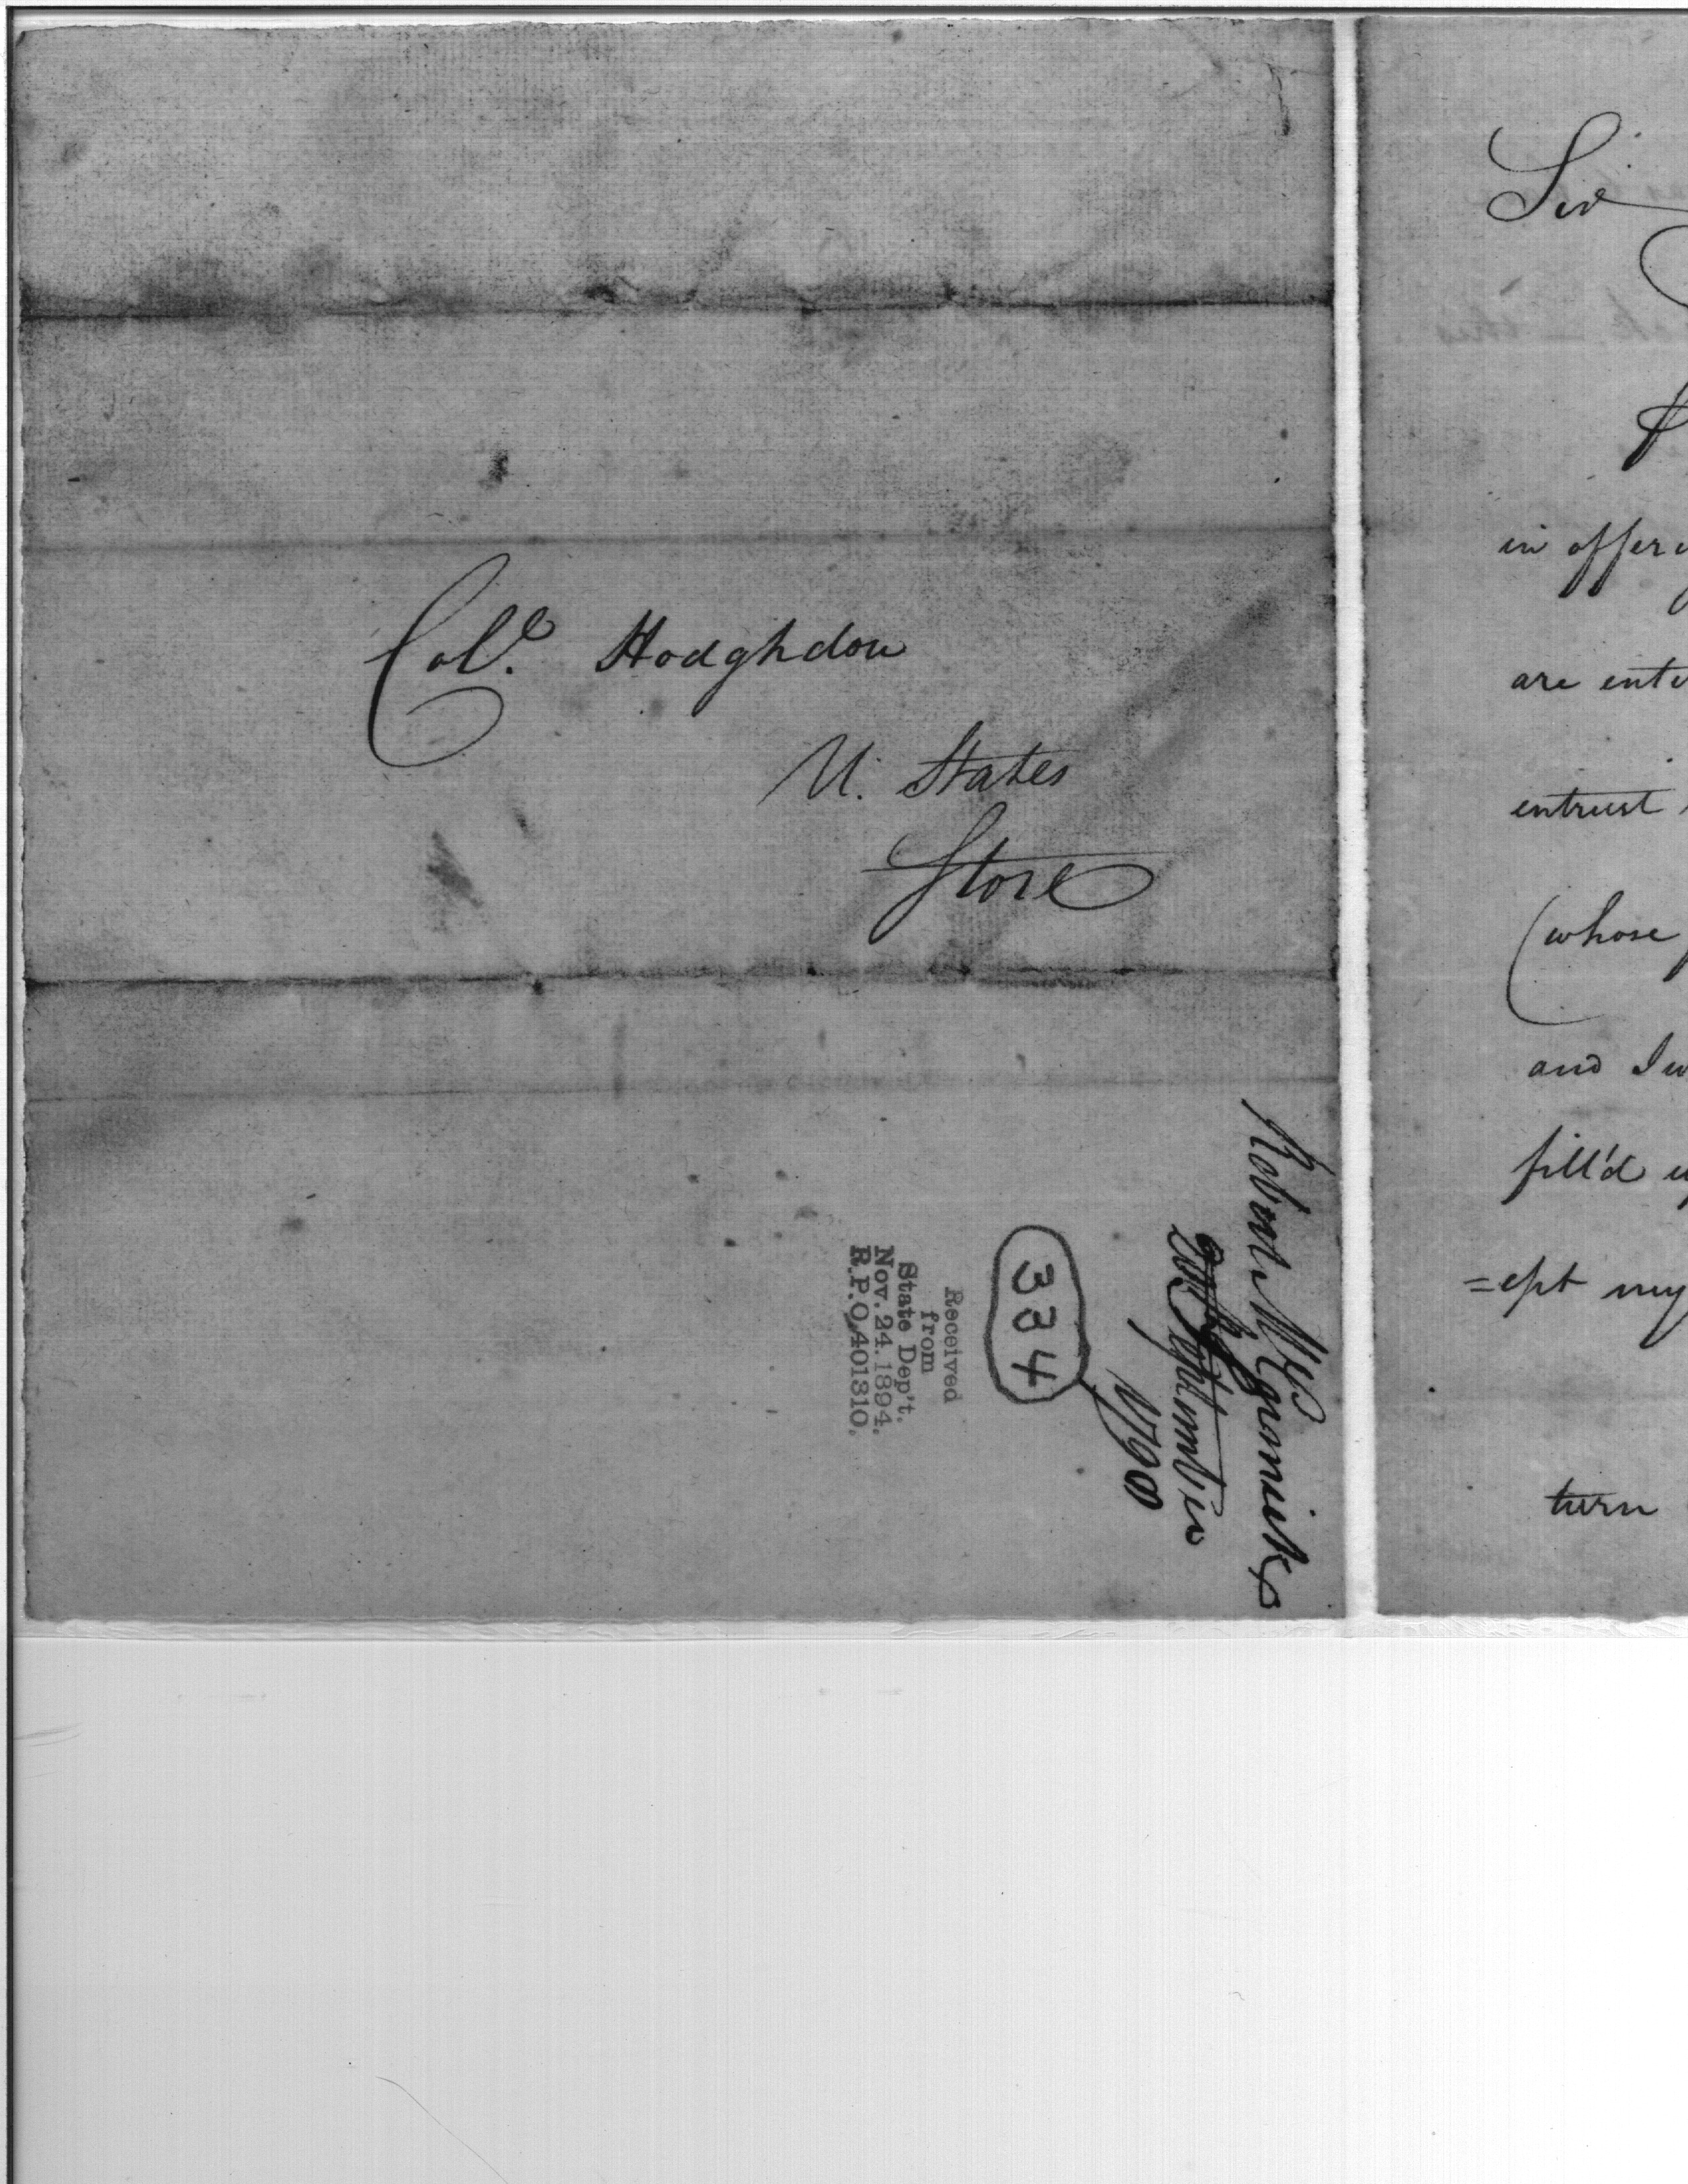 Col.o Hodghdon
U. States
Store
Robert McCormick
September
1790
334
Received
from
State Dep't.
Nov. 24. 1894.
R.P.O. 401310.
Sir
in offer
are ent
entrust
(whose
and I w
fill'd u
=ept my
turn